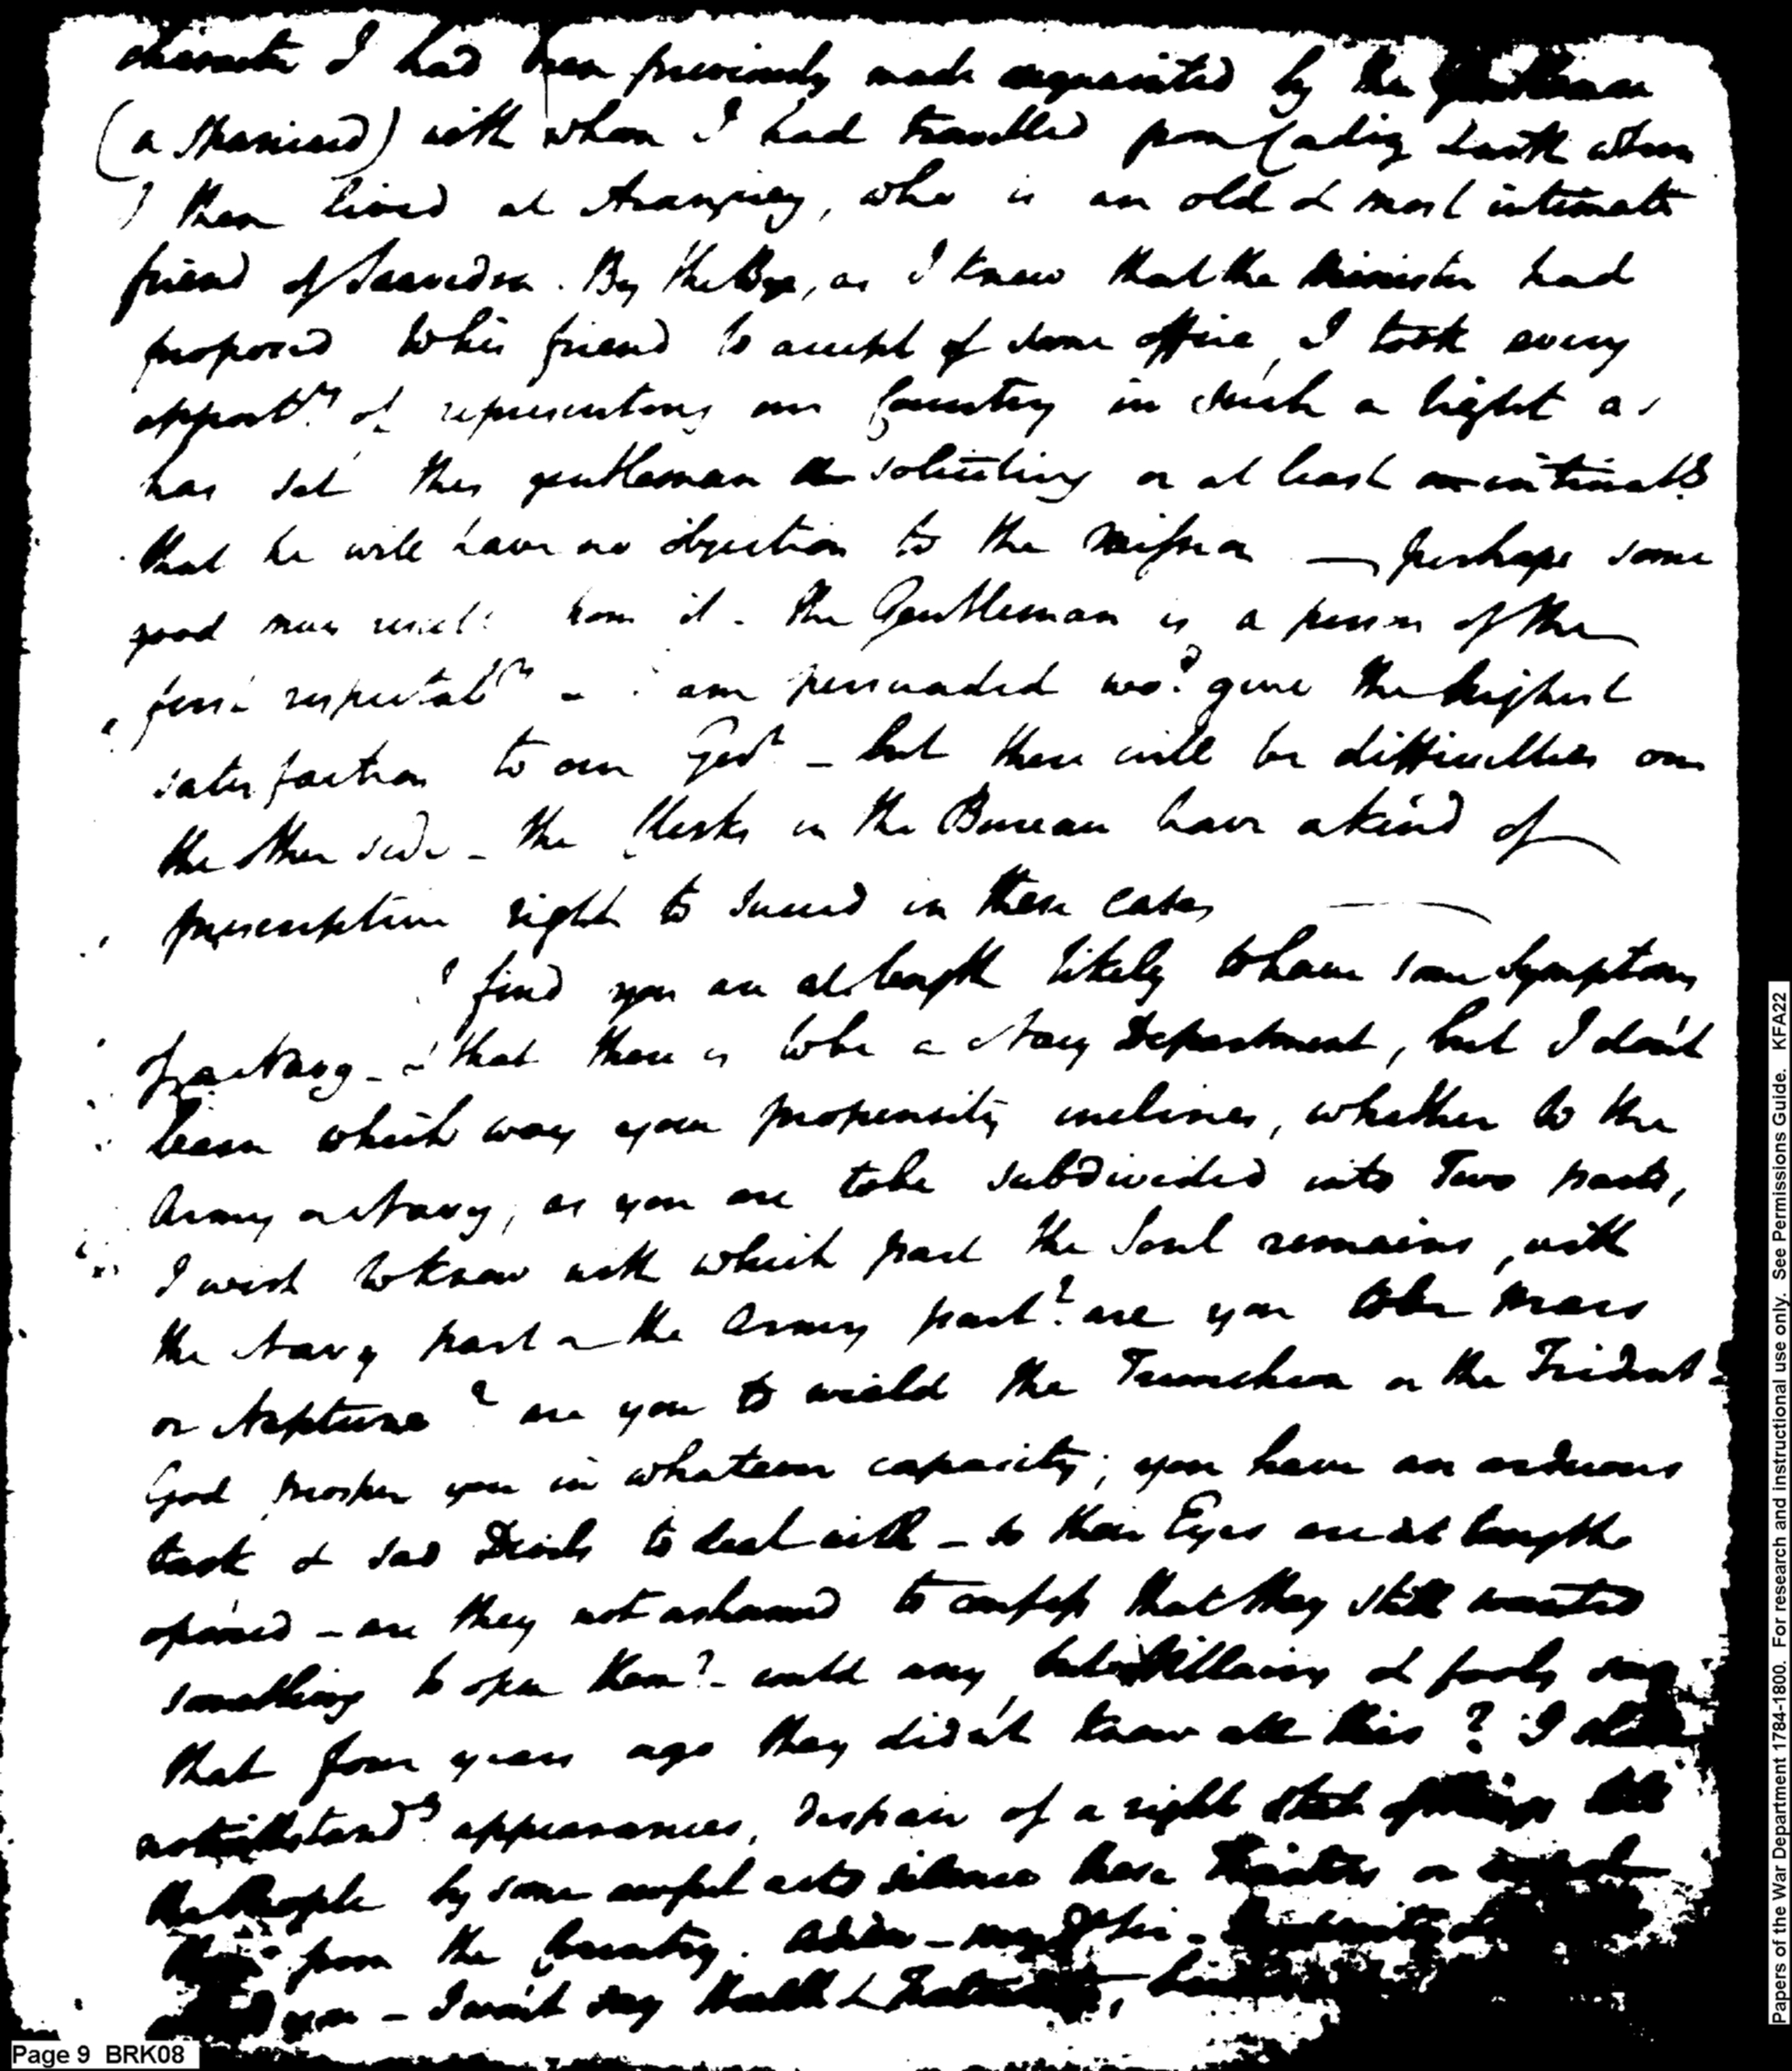 character I had been previously made acquainted by the Gentleman
(a Spaniard) with whom I had travelled from Cadiz & with whom
I then lived at Aranjuez, who is an old & most intimate
friend of Saavedra. By the Bye, as I knew that the Minister had
proposed to his friend to accept of some office, I took every
opporty. of representing our Country in such a light as
has set this gentleman a soliciting or at least an intimatg
that he will have no objection to the Mission — perhaps some
good may result from it - the Gentleman is a person of the
first respectaby - I am persuaded wod. give the highest
satisfaction to our Govt - but there will be difficulties on
the other side - the Clerks in the Bureau have a kind of
prescriptive right to succeed in these cases —
I find you are at length likely to have some symptoms
of a Navy - & that there is to be a Navy Department, but I don't
learn which way your propensity inclines, whether to the
Army or Navy, as you are to be subdivided into Two parts,
I wish to know with which part the Soul remains, with
the Navy part or the Army part? are you to be Mars
or Neptune? are you to wield the Truncheon or the Trident?
God prosper you in whatever capacity; you have an arduous
task & sad Devils to deal with - so their Eyes are at length
opened - are they not ashamed to confess that they still wanted
something to open them? - could any but Villains & fools say
that four years ago they didn't know all this? I
notwithstandg. appearances, despair of a right state of things till
the People by some awful acts silence these Traitors or
them from the Country. Adieu - my
you - I won't say Health & Fraternity,
Page 9 BRK08
Papers of the War Department 1784-1800. For research and instructional use only. See Permissions Guide. KFA22